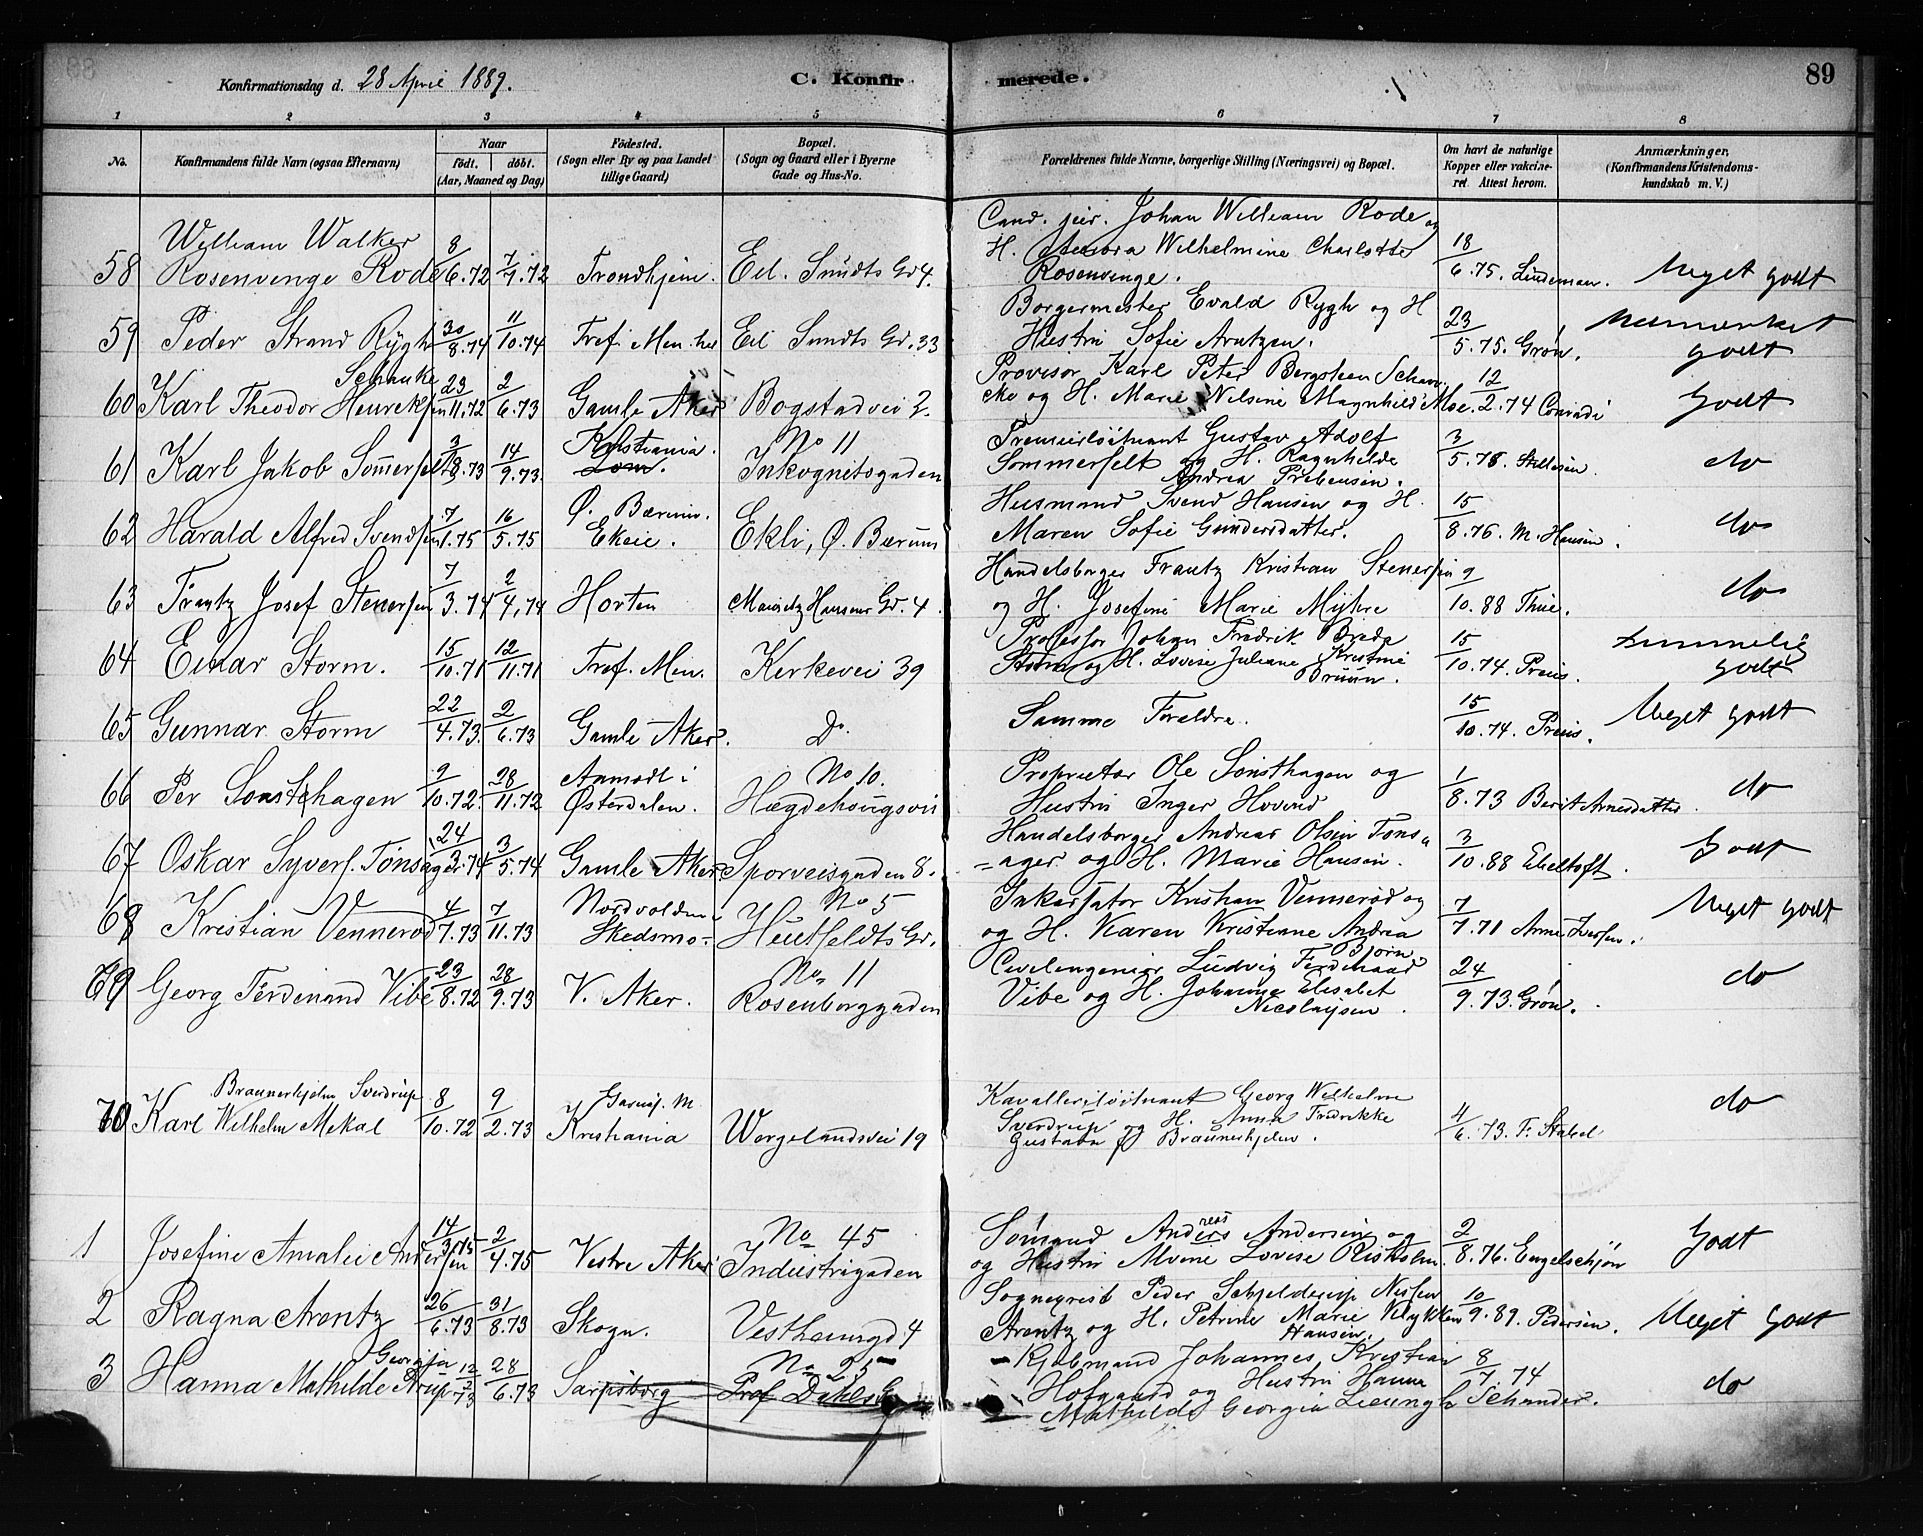 Konfirmationsdag d. 28 April 1889.
C. Konfirmerede.
89
1 2 3 4 5 6 7 8
No.
Konfirmandens fulde Navn (ogsaa Efternavn)
Naar
født. døbt.
(Aar, Maaned og Dag)
Fødested.
(Sogn eller By og paa Landet
tillige Gaard)
Bopæl.
(Sogn og Gaard eller i Byerne
Gade og Hus-No.
Forældrenes fulde Navne, borgerlige Stilling (Næringsvei) og Bopæl.
Om havt de naturlige
Kopper eller vakcine-
ret. Attest herom.
Anmærkninger,
(Konfirmandens Kristendoms-
kundskab m. V.)
58 William Walker Rosenvenge Rode 8/6.72 7/7.72 Trondhjem. Eil. Sundts Gd 4. Cand. jur. Johan William Rode og
H. Aurora Wilhelmine Charlotte
Rosenvenge. 18/6.75. Lindeman. Meget godt
59 Peder Strand Rygh 30/8.74 11/10.74 Tref. Men. hed Eil Sundts Gd. 33 Borgermester Evald Rygh og H
Hustru Sofie Arntzen. 23/5.75. Grøn. Udmærket
godt
60 Karl Theodor Henriksen Schanke 23/11.72 2/6.73 Gamle Aker Bogstadvei 2. Provisor Karl Peter Bergsteen Schan-
cke og H. Marie Nilsine Magnhild Moe. 12/2.74 Conradi Godt
61 Karl Jakob Sømerfelt 3/8.73 14/9.73 Kristiania.
Lom. No 11
Inkognitogaden Premierløitnant Gustav Adolf
Sommerfelt og H. Ragnhilde
Andrea Prebensen. 3/5.78. Stillesen. do
62 Harald Alfred Svendsen 7/1.75 16/5.75 Ø. Bærum.
Ekeie. Ekli, Ø. Bærum Husmand Svend Hansen og H.
Maren Sofie Gundersdatter. 15/8.76. M. Hansen. do
63 Frantz Josef Stenersen 7/3.74 2/4.74 Horten Mauritz Hansens Gd. 4. Handelsborger Frantz Kristian Stenersen
og H. Josefine Marie Myhre 9/10.88 Thue. do
64 Einar Storm. 15/10.71 12/11.71 Tref. Men. Kirkevei 39 Professor Johan Fredrik Breda
Storm og H. Lovise Juliane Kristine
Bruun. 15/10.74. Preus. temmelig
godt
65 Gunnar Storm 22/4.73. 2/6.73 Gamle Aker. Do. Samme Forældre. 15/10.74. Preus. Meget godt
66 Per Sonsthagen 9/10.72. 28/11.72 Aamodt i
Østerdalen. No 10.
Hægdehougsvei Proprietær Ole Sonsthagen og
Hustru Inger Hovind 1/8.73 Berit Arnesdatter. do
67 Oskar Syvers. Tønsager 24/3.74 3/5.74 Gamle Aker Sporveisgaden 8. Handelsborger Andreas Olsen Tøns-
ager og H. Marie Hansen. 3/10.88 Ebeltoft. Godt
68 Kristian Vennerød 4/7.73 7/11.73 Nordvolden i
Skedsmo. No 5
Huitfeldts Gd. Inkassator Kristian Vennerød og
og H. Karen Kristiane Andrea
Bjørn. 7/7.71 Arne Iversen. Meget godt
69 Georg Ferdinand Vibe 23/8.72 28/9.73 V. Aker. No. 11
Rosenborggaden Civilengeniør Ludvig Ferdinand
Vibe og H. Johanne Elisabet
Nicolaysen. 24/9.73. Grøn. do
70 Karl Wilhelm Mekal Braunerhjelm Sverdrup 8/10.72 9/2.73 Garnis. M.
Kristiania Wergelandsvei 19 Kavalleriløitnant Georg Wilhelm
Sverdrup og H. Anna Fredrikke
Gustava f. Braunerhjelm. 4/6.73. F. Stabel do
1 Josefine Amalie Andersen 14/3.75 2/4.75 Vestre Aker No 45
Industrigaden Sømand Andreas Andersen og
og Hustru Alvine Lovise Ristholm. 2/8.76. Engelschjøn Godt
2 Ragna Arentz 26/6.73 31/8.73 Skogn. Vestheimgd 4 Sogneprest Peder Schjelderup Nissen
Arentz og H. Petrine Marie Klykken
Hansen. 10/9.89. Pedersen. Meget Godt
3 Hanna Mathilde Georgia 12/2.73 28/6.73 Sarpsborg No 25
Prof Dahls G Kjøbmand Johannes Kristian
Hofgaard og Hustru Hanna
Mathilde Georgia Lieungh 8/7.74
Schander. do